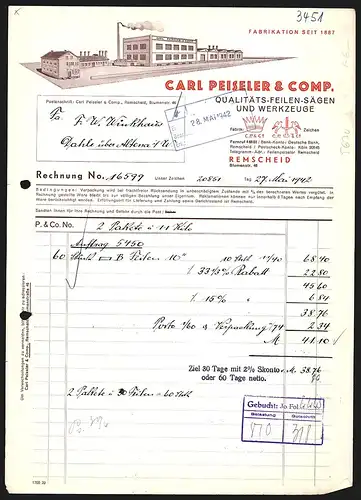 3451
FABRIKATION SEIT 1887
CARL PEISELER & COMP.
QUALITÄTS-FEILEN-SÄGEN
UND WERKZEUGE
Postanschrift: Carl Peiseler & Comp., Remscheid, Blumenstr. 46
28. MAI 1942
Fa. P. W. Winkhaus
Dahle über Altena i. W.
Fabrik- Zeichen
Fernruf 46655 / Bank-Konto: Deutsche Bank,
Remscheid / Postscheck-Konto: Köln 30645
Telegramm-Adr.: Feilenpeiseler Remscheid
REMSCHEID
Blumenstr. 46
Rechnung No. 16599 Unser Zeichen 20851 Tag 27. Mai 1942
Senden Ihnen für Ihre Rechnung und Gefahr durch die Post
P. & C. No. 2 Pakete
Auftrag 5450
60 Stück B Feilen 10" 68.40
33⅓% Rabatt 22.80
45.60
15% 6.84
38.76
Porto 1/60 & Verpackung /74 2.34
M 41.10
Ziel 30 Tage mit 2% Skonto M. 38.76
oder 60 Tage netto.
2 Pakete à 30 Feilen = 60 Stck
Gebucht: Jo Fol
Belastung Gutschrift